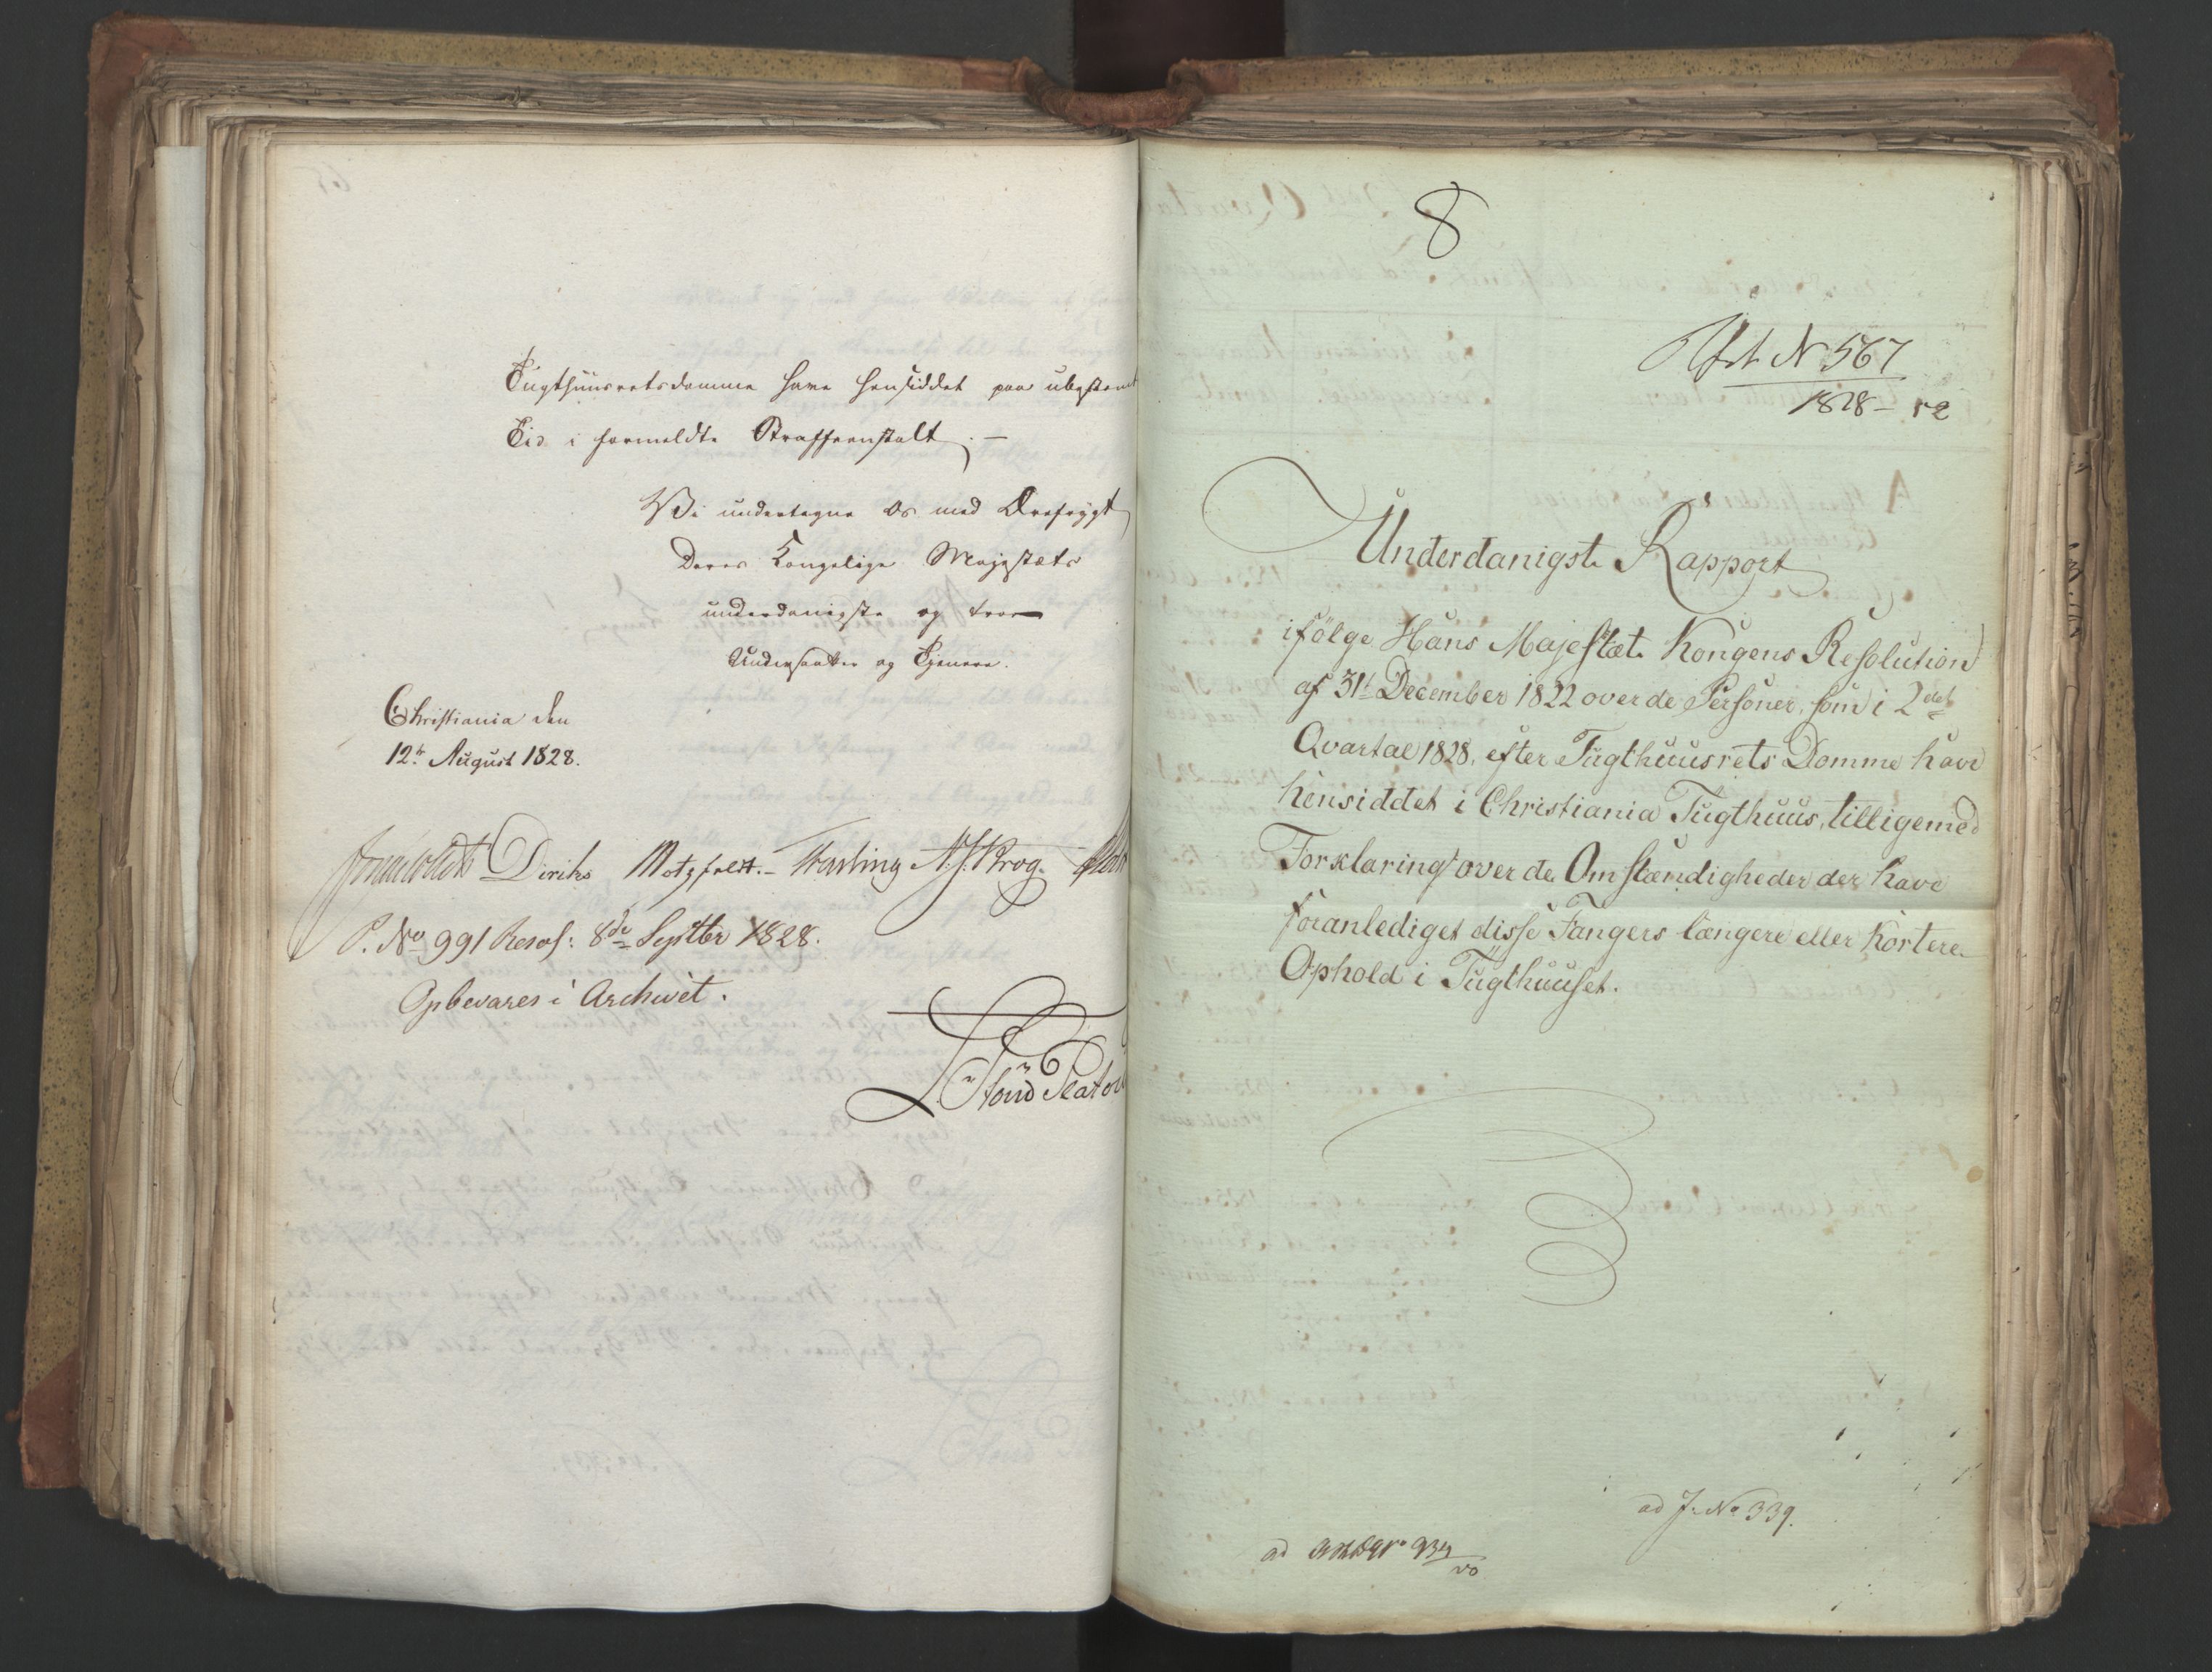 Tugthuusretsdomme have hensiddet paa ubestemt
Tid i formeldte Straffeanstalt. —
Vi undertegne os med Ærefrygt
Deres Kongelige Majestæts
underdanigste og troe
Undersaatter og Tjenere.
Christiania den
12te August 1828.
Diriks Motzfeldt. Fasting N. J. Krog.
P. No 991 Resol: 8de Septbr 1828.
Opbevares i Archivet.
8
N 567
1828 - 12
Underdanigste Rapport
ifölge Hans Majestæt Kongens Resolution
af 31t December 1822 over de Personer, som i 2det
Qvartal 1828, efter Tugthuusrets Domme have
hensiddet i Christiania Tugthuus, tilligemed
Forklaring over de Omstændigheder der have
foranlediget disse Fangers længere eller kortere
Ophold i Tugthuuset.
ad J. No 339.